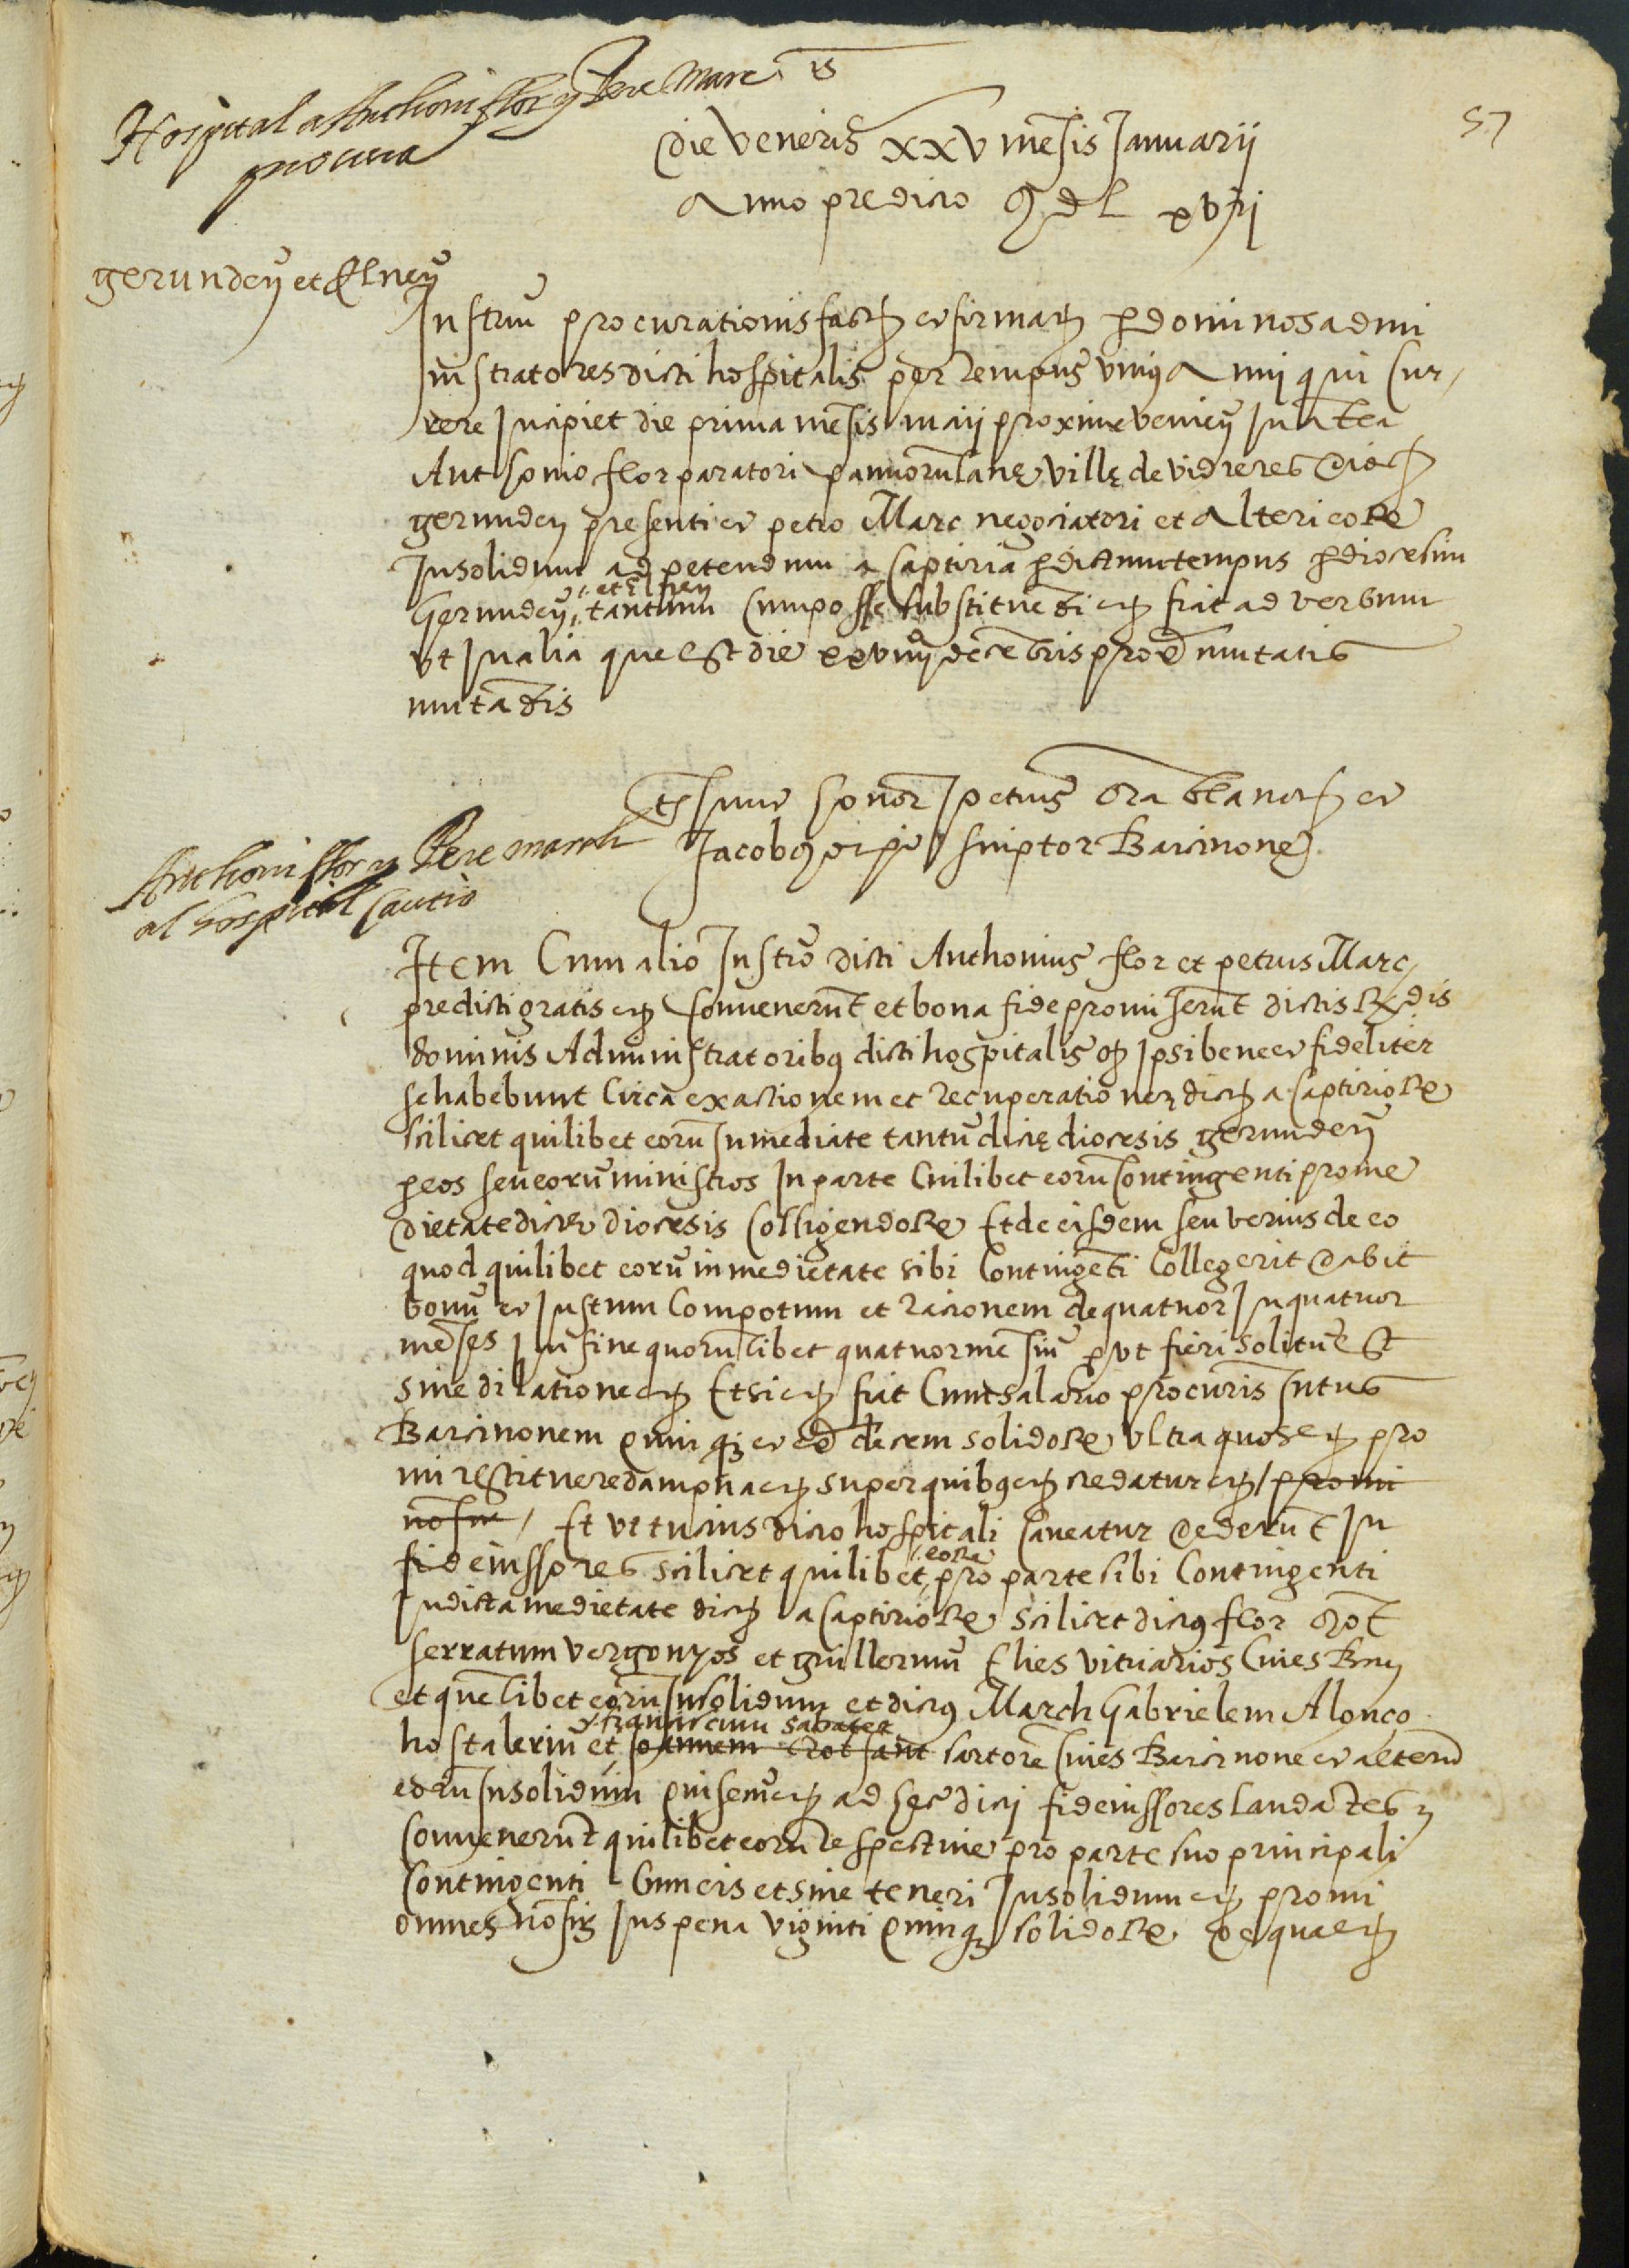 Hospital a Anthoni flor y Pere Marc
procura
57
Die veneris xxv mesis Januarii
Anno predicto
gerundeñ et Elneñ
Instrũ procurationis fact et firmat per dominos admi
nistratores dicti hospitalis per tempus unius Anni qui Cur
rere Incipiet die prima mesis maii proxime venieñ In Antea
Anthonio flor paratori pannorum lane ville de vidreres dioc
gerundeñ presenti et petro Marc negociatori et Alteri eorum
Insolidum ad petendum a captiria per dictum tempus per diocesim
Gerundeñ et Elneñ tantum Cum posse substituedi etc fiat ad verbum
ut In alia que est die decebris prox mutatis
mutãdis
Testes sunt honor petrus et
Jacobus scriptor Barcinone
Anthoni flor y Pere march
al hospital cautio
Item Cum alio Instro dicti Anthonius flor et petrus Marc
predicti gratis etc Convenerunt et bona fide promiserunt dictis Rdis
dominis Administratoribus dicti hospitalis ipsi bene et fideliter
se habebunt Circa exactionem et recuperationez dict a captiriorum
scilicet quilibet eorũ In mediate tantũ dicte diocesis gerundeñ
per eos seu eorũ ministros In parte Cuilibet eorũ Contingenti pro me
dietate dicte diocesis Colligendorum Et de eisdem seu verius de eo
quod quilibet eorũ in medietate sibi Contingẽti Collegerit dabit
bonũ et Justum Compotum et racionem de quatuor In quatuor
mẽses In fine quorũlibet quatuor mensiũ prout fieri solitũ est
sine dilatione etc Et sic etc fiat Cum salario procuris Intus
Barcinonem quinque et extra decem solidorum ultra quos etc pro
mi restituere dampna etc super quibus etc credatur etc promi
no Et ut tucius dicto hospitali caveatur dederunt In
fideiussores scilicet quilibet eorum pro parte sibi Contingenti
In dicta medietate dict a captiriorum scilicet dictus flor
serratum vergonyos et guillermũ Elies vitriarios Cives
et quelibet eorũ Insolidum et dictus March Gabrielem Alonço
hostalerium et franciscum sabater Joannem sartorẽ Cives Barcinone et alterũ
eorũ Insolidum qui simul etc ad hec dicti fideiussores laudãtes
Convenerunt quilibet eorũ respective pro parte suo principali
Contingenti Cum eis et sine teneri Insolidum etc promi
omnes pena viginti quinque solidorum de qua etc